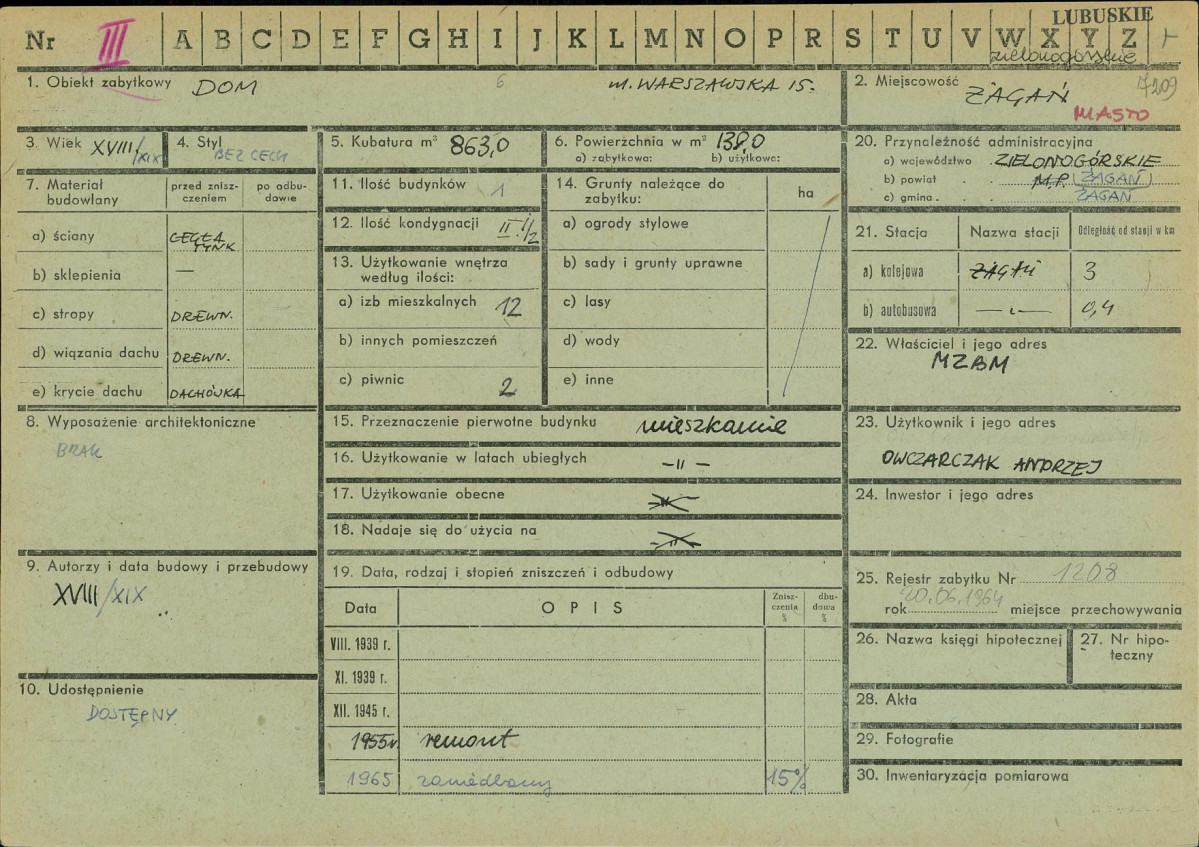 LUBUSKIE
Nr III A B C D E F G H I J K L M N O P R S T U V W X Y Z
zielonogórskie
1. Obiekt zabytkowy DOM 6 ul. WARSZAWSKA 15.
2. Miejscowość ŻAGAŃ 7209
MIASTO
3. Wiek XVIII/XIX
4. Styl BEZ CECH
5. Kubatura m³ 863,0
6. Powierzchnia w m² 138,0
a) zabytkowa: b) użytkowa:
20. Przynależność administracyjna
a) województwo ZIELONOGÓRSKIE
b) powiat M.P. (ŻAGAŃ)
c) gmina ŻAGAŃ
7. Materiał budowlany
przed zniszczeniem
po odbudowie
a) ściany CEGŁA TYNK
b) sklepienia —
c) stropy DREWN.
d) wiązania dachu DREWN.
e) krycie dachu DACHÓWKA
11. Ilość budynków 1
12. Ilość kondygnacji II 1/2
13. Użytkowanie wnętrza według ilości:
a) izb mieszkalnych 12
b) innych pomieszczeń
c) piwnic 2
14. Grunty należące do zabytku:
ha
a) ogrody stylowe
b) sady i grunty uprawne
c) lasy
d) wody
e) inne
21. Stacja Nazwa stacji Odległość od stacji w km
a) kolejowa ŻAGAŃ 3
b) autobusowa —„— 0,4
22. Właściciel i jego adres
MZBM
8. Wyposażenie architektoniczne
BRAK
15. Przeznaczenie pierwotne budynku mieszkanie
16. Użytkowanie w latach ubiegłych —„—
17. Użytkowanie obecne —„—
18. Nadaje się do użycia na —„—
23. Użytkownik i jego adres
OWCZARCZAK ANDRZEJ
24. Inwestor i jego adres
9. Autorzy i data budowy i przebudowy
XVIII/XIX
19. Data, rodzaj i stopień zniszczeń i odbudowy
Data OPIS Zniszczenia % dbudowa %
VIII. 1939 r.
XI. 1939 r.
XII. 1945 r.
1955r. remont
1965 zaniedbany 15%
25. Rejestr zabytku Nr 1208
rok 20.06.1964 miejsce przechowywania
26. Nazwa księgi hipotecznej
27. Nr hipoteczny
10. Udostępnienie
DOSTĘPNY
28. Akta
29. Fotografie
30. Inwentaryzacja pomiarowa